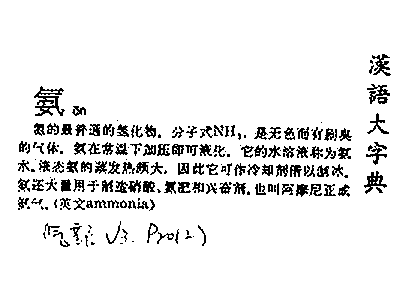 漢語大字典
氨 ān
氮的最普通的氢化物。分子式NH₃，是无色而有刺臭
的气体。氨在常温下加压即可液化。它的水溶液称为氨
水。液态氨的蒸发热颇大，因此它可作冷却剂借以制冰。
氨还大量用于制造硝酸、氮肥和兴奋剂。也叫阿摩尼亚或
氨气。(英文ammonia)
V3.